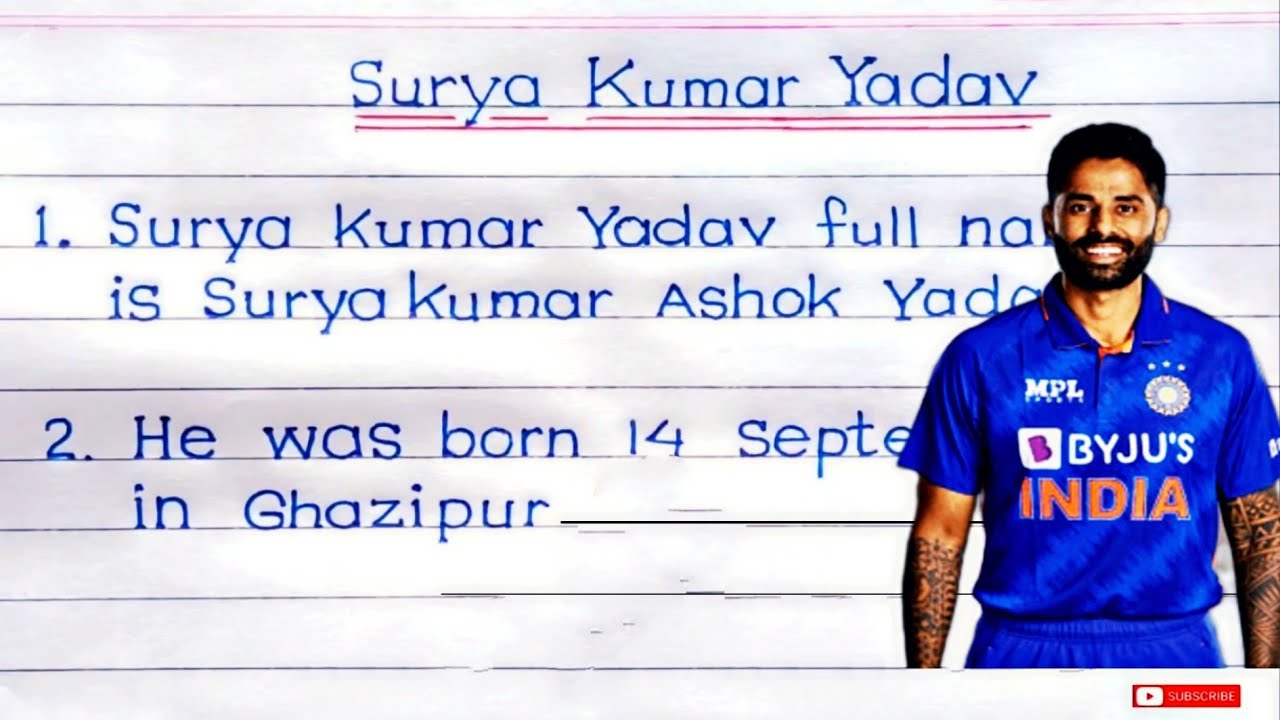 Surya Kumar Yadav
1. Surya Kumar Yadav full
is Surya kumar Ashok
2. He was born 14
in Ghazipur
MPL
SPORTS
BYJU'S
INDIA
SUBSCRIBE